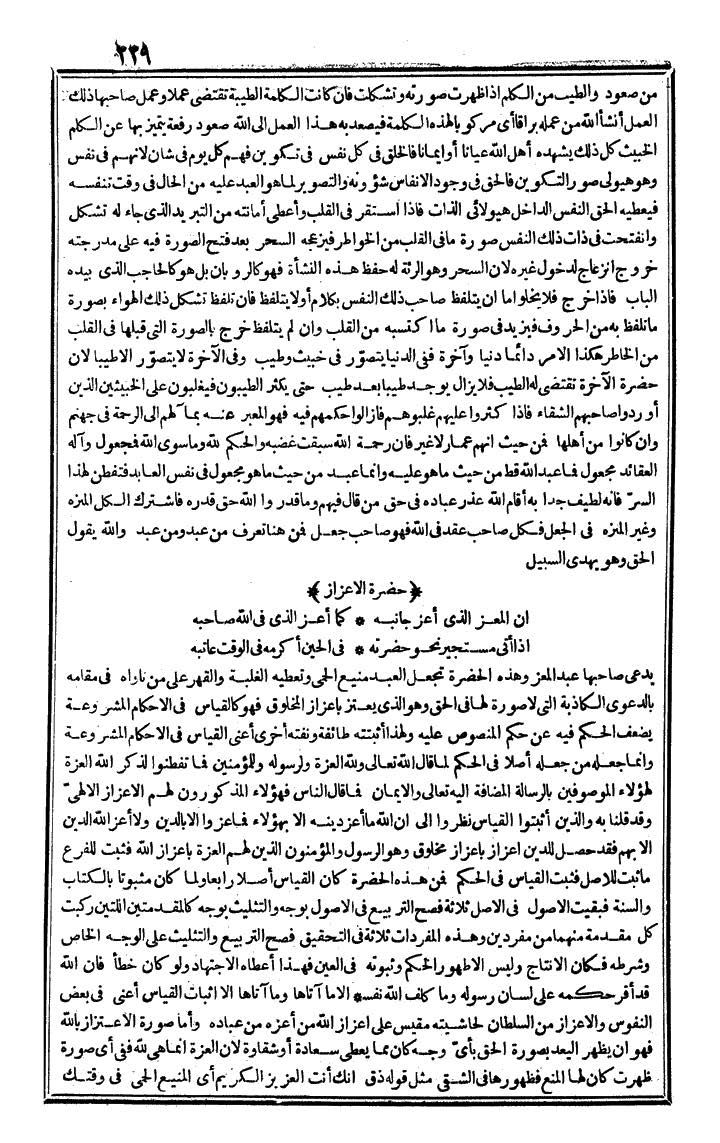 ٢٢٩
من صعود والطيب من الكلم اذا ظهرت صورته وتشكلت فان كانت الكلمة الطيبة تقتضى عملا وعمل صاحبها ذلك
العمل أنشأ الله من عمله براقا أى مركوبا لهذه الكلمة فيصعد به هذا العمل الى الله صعود رفعة يتميز بها عن الكلم
الخبيث كل ذلك يشهده أهل الله عيانا أو ايمانا فالخلق فى كل نفس فى تكوين فهم كل يوم فى شان لانهم فى نفس
وهو هيولى صور التكوين فالحق فى وجود الانفاس شؤونه والتصوير لما هو العبد عليه من الحال فى وقت تنفسه
فيعطيه الحق النفس الداخل هيولائى الذات فاذا استقر فى القلب وأعطى أمانته من التبريد الذى جاء له تشكل
وانفتحت فى ذات ذلك النفس صورة ما فى القلب من الخواطر فيزعجه السحر بعد فتح الصورة فيه على مدرجته
خروج انزعاج لدخول غيره لان السحر وهو الرئة له حفظ هذه النشأة فهو كالروبان بل هو كالحاجب الذى بيده
الباب فاذا خرج فلا يخلو اما ان يتلفظ صاحب ذلك النفس بكلام أو لا يتلفظ فان تلفظ تشكل ذلك الهواء بصورة
ما تلفظ به من الحروف فيزيد فى صورة ما اكتسبه من القلب وان لم يتلفظ خرج بالصورة التى قبلها فى القلب
من الخاطر هكذا الامر دائما دنيا وآخرة فنى الدنيا يتصور فى خبيث وطيب وفى الآخرة لا يتصوّر الا طيبا لان
حضرة الآخرة تقتضى له الطيب فلا يزال يوجد طيبا بعد طيب حتى يكثر الطيبون فيغلبون على الخبيثين الذين
أوردوا صاحبهم الشقاء فاذا كثروا عليهم غلبوهم فازالوا حكمهم فيه فهو المعبر عنه بمآلهم الى الرحمة فى جهنم
وان كانوا من أهلها فمن حيث انهم عمار لا غير فان رحمة الله سبقت غضبه والحكم لله وما سوى الله فمجعول وآله
العقائد مجعول فما عبد الله قط من حيث ما هو عليه وانما عبد من حيث ما هو مجعول فى نفس العابد فتفطن لهذا
السرّ فانه لطيف جدا به أقام الله عذر عباده فى حق من قال فيهم وما قدروا الله حق قدره فاشترك الكل المنزه
وغير المنزه فى الجعل فكل صاحب عقد فى الله فهو صاحب جعل فمن هنا تعرف من عبد ومن عبد والله يقول
الحق وهو يهدى السبيل
﴿ حضرة الاعزاز ﴾
ان المعز الذى أعز جانبه * كما أعز الذى فى الله صاحبه
اذا أتى مستجير نحو حضرته * فى الحين أكرمه فى الوقت عاتبه
يدعى صاحبها عبد المعز وهذه الحضرة تجعل العبد منيع الحمى وتعطيه الغلبة والقهر على من ناواه فى مقامه
بالدعوى الكاذبة التى لا صورة لها فى الحق وهو الذى يعتز باعزاز المخلوق فهو كالقياس فى الاحكام المشروعة
يضعف الحكم فيه عن حكم المنصوص عليه ولهذا أثبتته طائفة ونفته أخرى أعنى القياس فى الاحكام المشروعة
وانما جعله من جعله أصلا فى الحكم لما قال الله تعالى ولله العزة ولرسوله وللمؤمنين فما تفطنوا لذكر الله العزة
لهؤلاء الموصوفين بالرسالة المضافة اليه تعالى والايمان فما قال الناس فهؤلاء المذكورون لهم الاعزاز الالهىّ
وقد قلنا به والذين أثبتوا القياس نظروا الى ان الله ما أعز دينه الا بهؤلاء فما عزوا الا بالدين ولا أعز الله الدين
الا بهم فقد حصل للدين اعزاز باعزاز مخلوق وهو الرسول والمؤمنون الذين لهم العزة باعزاز الله فثبت للفرع
ما ثبت للاصل فثبت القياس فى الحكم فمن هذه الحضرة كان القياس أصلا رابعا ولما كان مثبوتا بالكتاب
والسنة فبقيت الاصول فى الاصل ثلاثة فصح التربيع فى الاصول بوجه والتثليث بوجه كالمقدمتين اللتين ركبت
كل مقدمة منهما من مفردين وهذه المفردات ثلاثة فى التحقيق فصح التربيع والتثليث على الوجه الخاص
وشرطه فكان الانتاج وليس الا ظهور الحكم وثبوته فى العين فهذا أعطاه الاجتهاد ولو كان خطأ فان الله
قد أقر حكمه على لسان رسوله وما كلف الله نفسا الا ما آتاها وما آتاها الا اثبات القياس أعنى فى بعض
النفوس والاعزاز من السلطان لحاشيته مقيس على اعزاز الله من أعزه من عباده وأما صورة الاعتزاز بالله
فهو ان يظهر العبد بصورة الحق بأىّ وجه كان مما يعطى سعادة أو شقاوة لان العزة انما هى لله فنى أى صورة
ظهرت كان لها المنع فظهورها فى الشقى مثل قوله ذق انك أنت العزيز الكريم أى المنيع الحمى فى وقتك